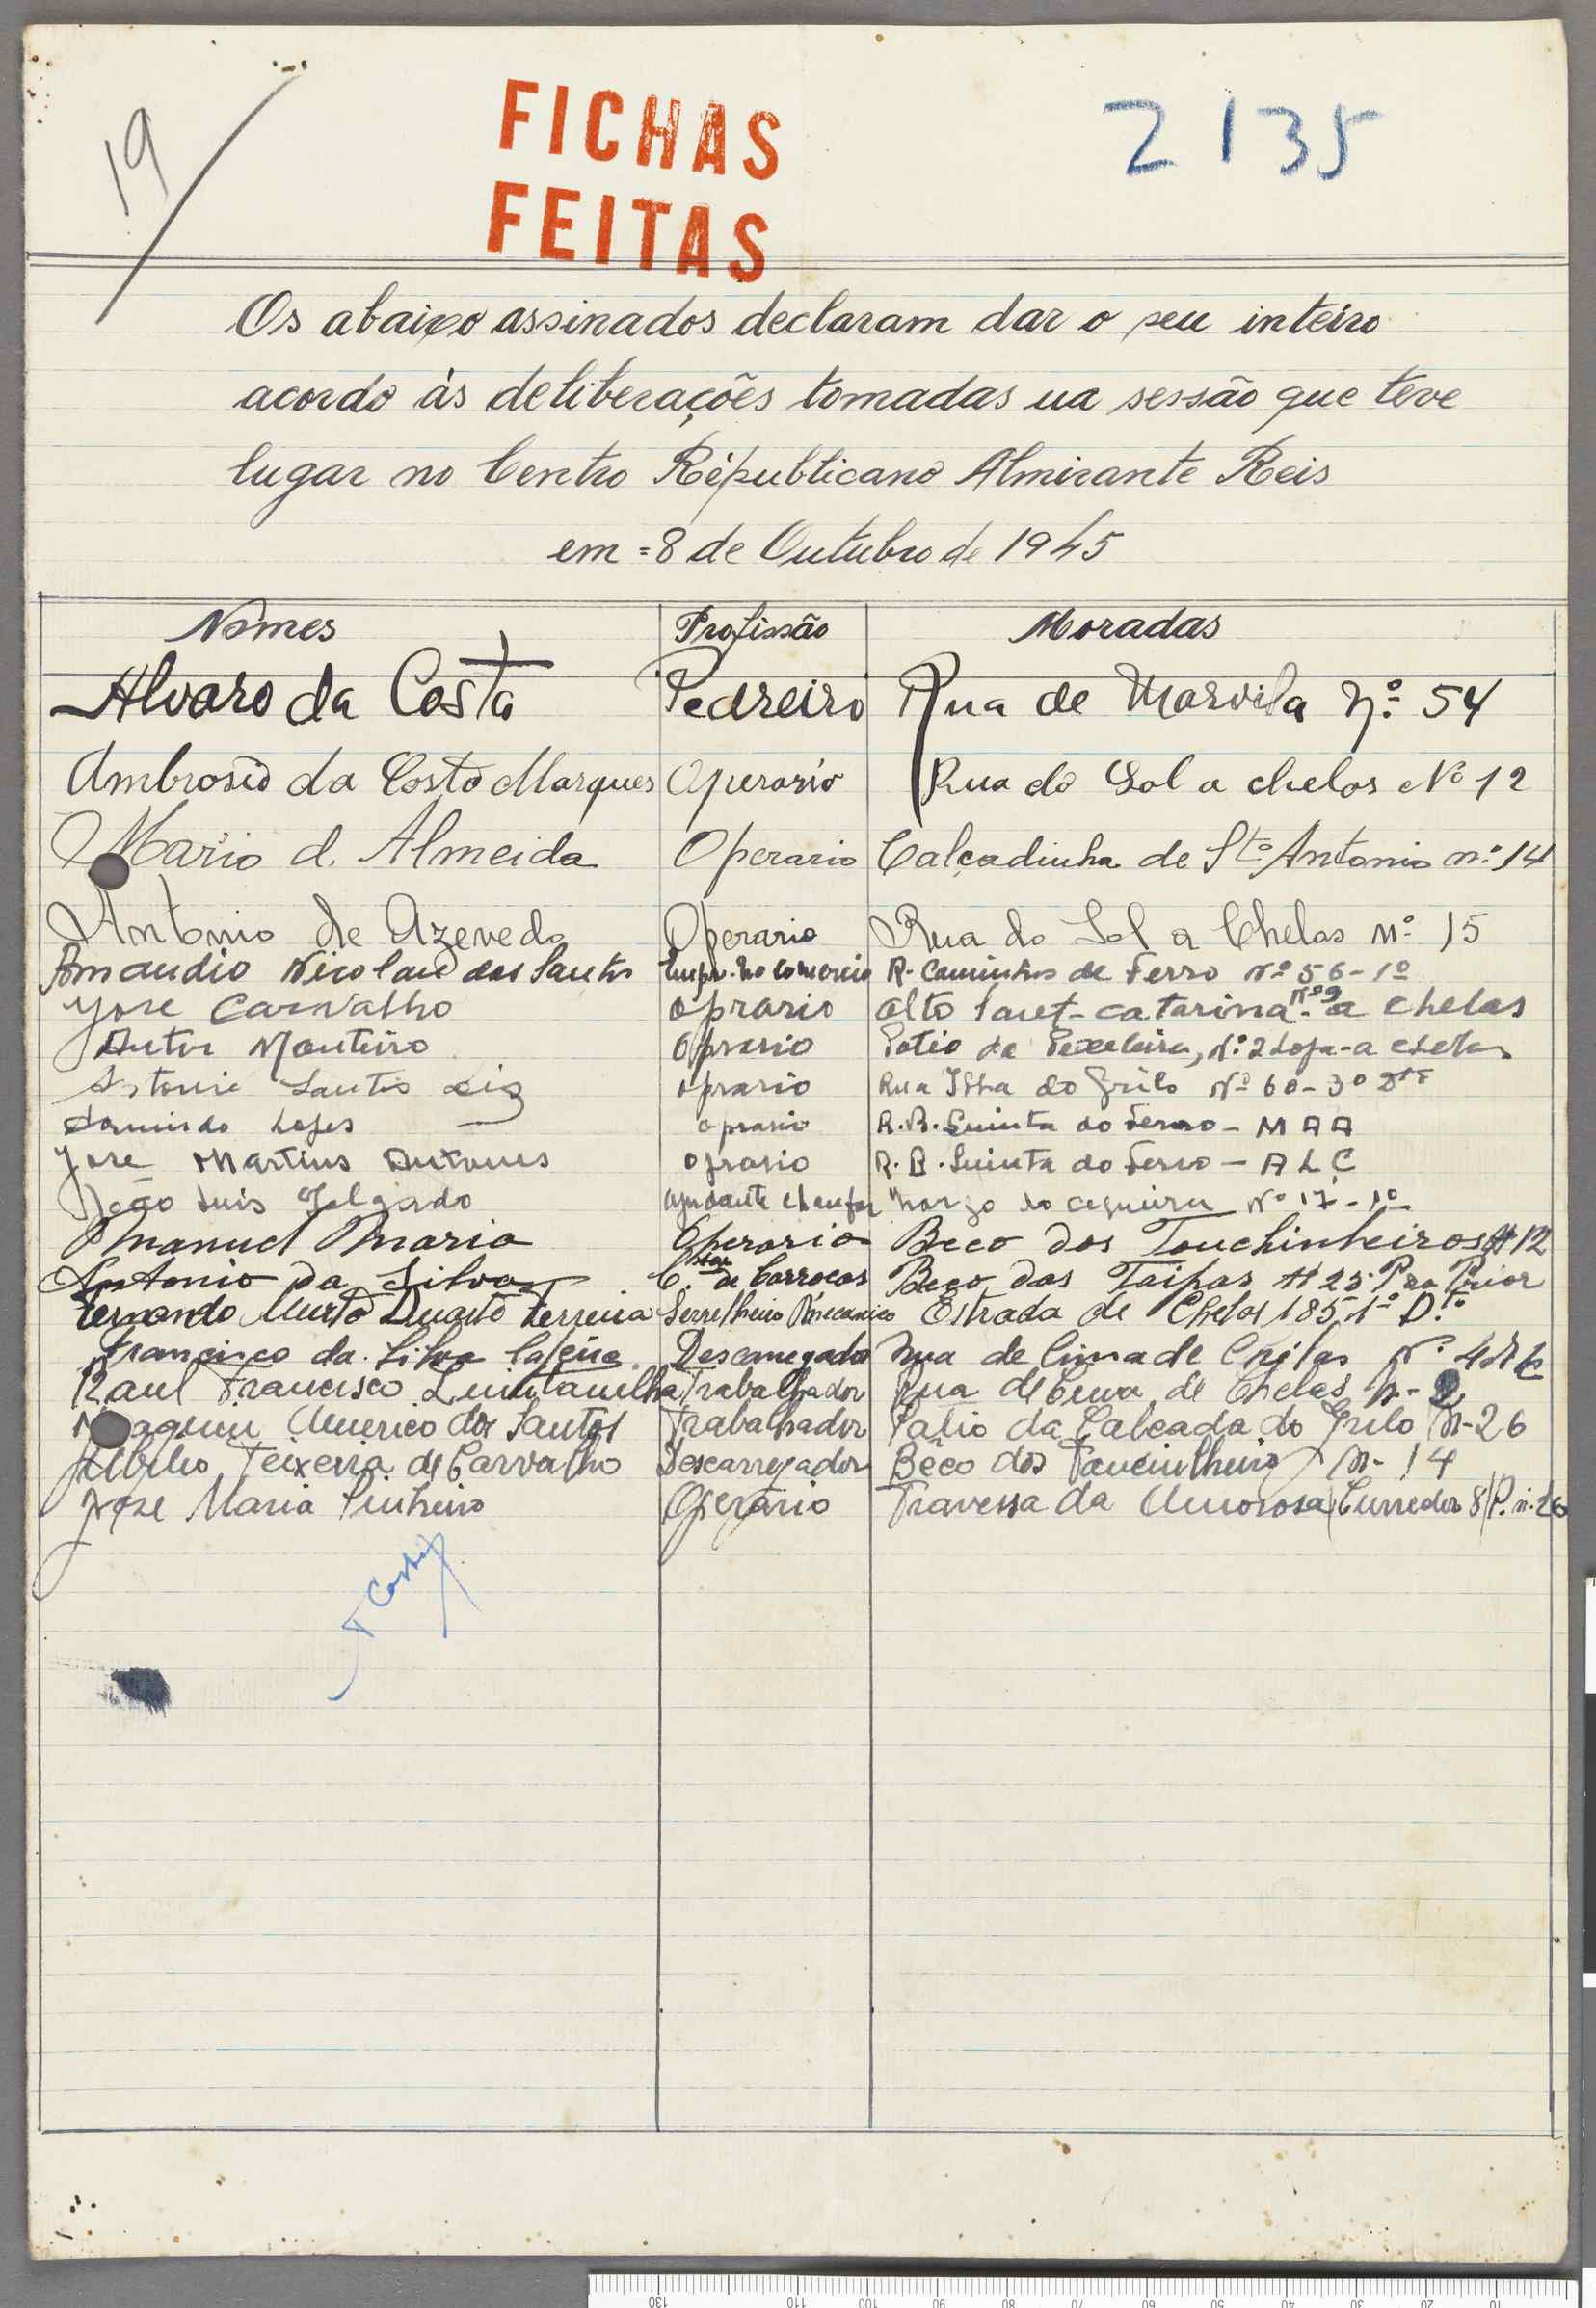 19
FICHAS
FEITAS
2135
Os abaixo assinados declaram dar o seu inteiro
acordo às deliberações tomadas na sessão que teve
lugar no Centro Républicano Almirante Reis
em = 8 de Outubro de 1945
Nomes Profissão Moradas
Alvaro da Costa Pedreiro Rua de Marvila Nº 54
Ambrosio da Costa Marques Operario Rua do Sol a chelas Nº 12
Mario d. Almeida Operario Calçadinha de Stº Antonio nº 14
Antonio de Azevedo Operario Rua do Sol a Chelas Nº 15
Nicolau dos Santos Empr. no comercio R. Caminhos de Ferro Nº 56-1º
Jose Carvalho oprario alto catarina Nº 9 a chelas
Monteiro oprario Patio da Nº 2 Loja-a chelas
Santos oprario Rua Ilha do Grilo Nº 60-3º Dtº
Lopes oprario R.B. Quinta do Ferro - M A A
Jose Martins Antunes oprario R.B. Quinta do Ferro - A L C
João Luis Salgado ajudante Nº 17-1º
Manuel Maria Operario Beco dos Touchinheiros # 12
Antonio da Silva C. de Carroças Beco das Taipas # 25 Prior
Fernando Duarte Ferreira Serrelheiro Mecanico Estrada de Chelas 185-1º D.to
Francisco da Silva Descarregador Rua de Cima de Chelas Nº
Raul Francisco Quintanilha Trabalhador Rua de Cima de Chelas N-2
Americo dos Santos Trabalhador Patio da Calçada do Grilo N-26
Abilio Teixeira de Carvalho Descarregador Bêco dos N-14
Jose Maria Pinheiro Operario Travessa da Amorosa Corredor 8 P. n. 26
Costa
130 110 100 90 80 70 60 50 40 30 20 10